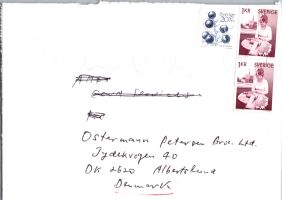 Sverige
1 KR SVERIGE
1 KR SVERIGE
Ostermann Petersen Bro. Ltd.
Jydekrogen 40
DK 2620 Albertslund
Denmark